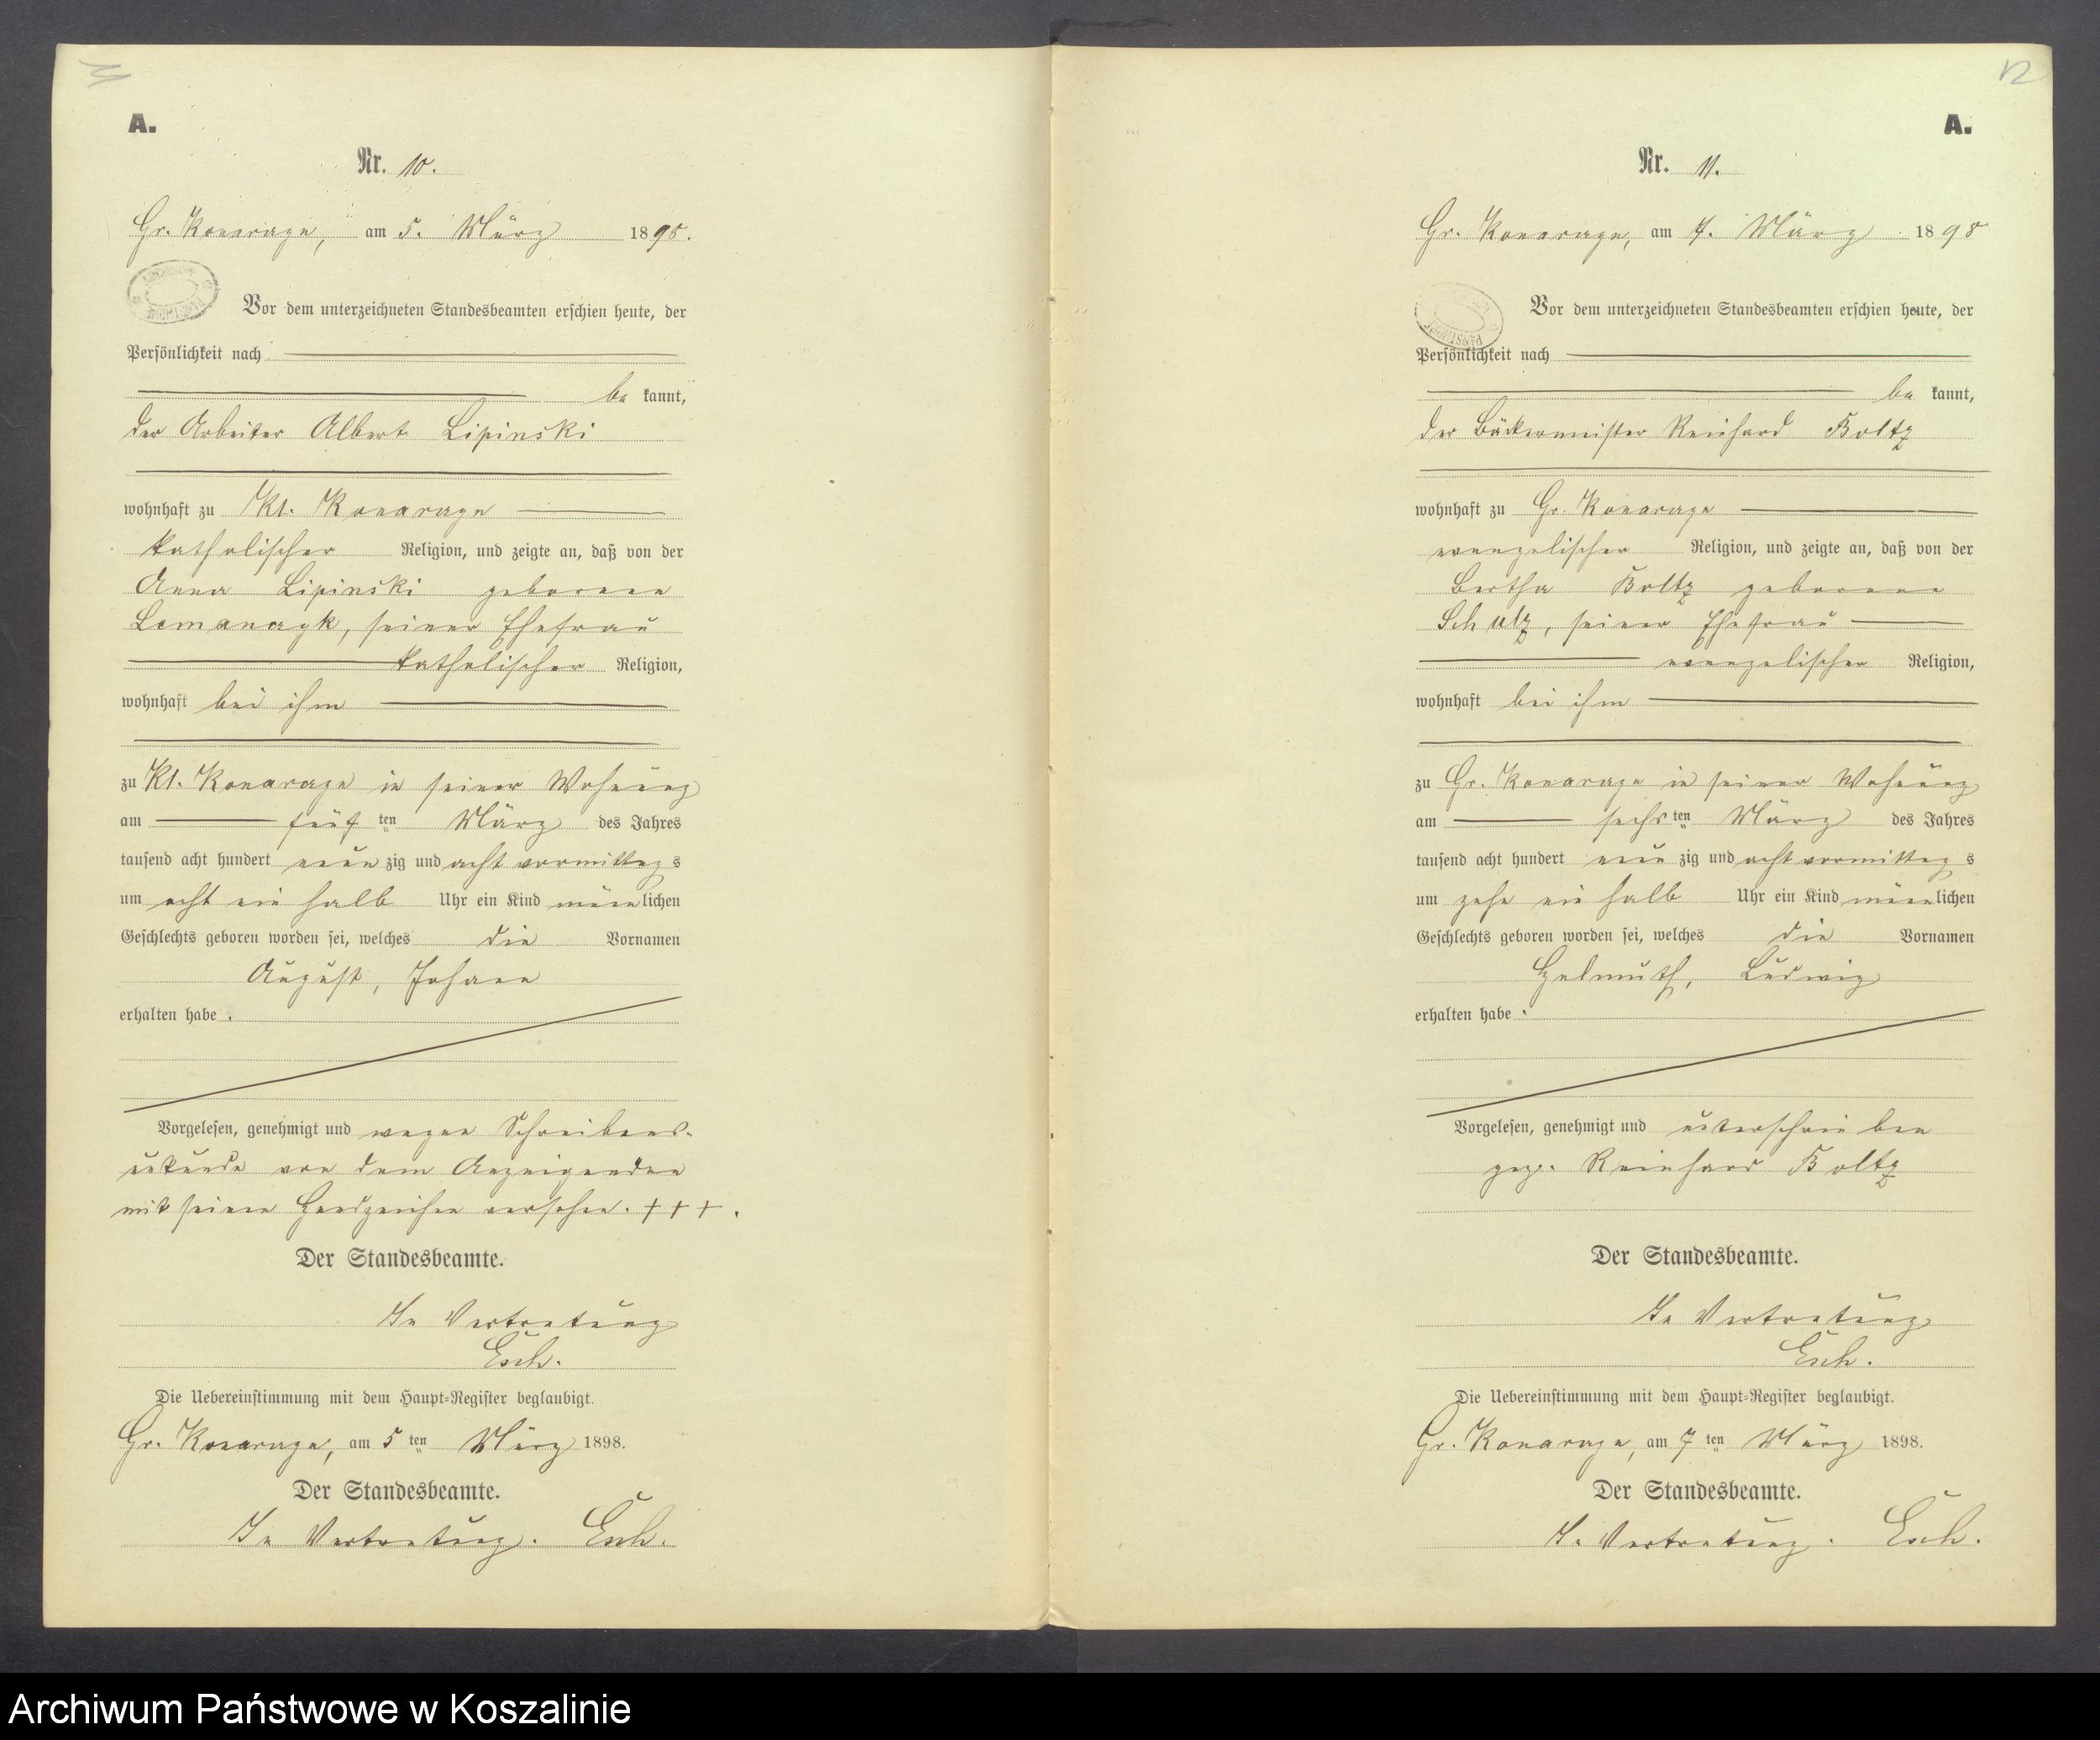 A.
Nr. 10.
Gr. Konarzyn, am 5. März 1898.
Vor dem unterzeichneten Standesbeamten erschien heute, der
Persönlichkeit nach
be kannt,
der Arbeiter Albert Lipinski
wohnhaft zu Kl. Konarzyn
katholischer Religion, und zeigte an, daß von der
Anna Lipinski geborene
Lemanczyk, seiner Ehefrau
katholischer Religion,
wohnhaft bei ihm
zu Kl. Konarzyn in seiner Wohnung
am fünf ten März des Jahres
tausend acht hundert neun zig und acht vormittag s
um acht ein halb Uhr ein Kind männlichen
Geschlechts geboren worden sei, welches die Vornamen
August, Johann
erhalten habe.
Vorgelesen, genehmigt und wegen Schreibens-
unkunde von dem Anzeigenden
mit seinen Handzeichen versehen. +++.
Der Standesbeamte.
In Vertretung
Esch.
Die Uebereinstimmung mit dem Haupt-Register beglaubigt.
Gr. Konarzyn, am 5 ten März 1898.
Der Standesbeamte.
In Vertretung. Esch.
12
A.
Nr. 11.
Gr. Konarzyn, am 7. März 1898
Vor dem unterzeichneten Standesbeamten erschien heute, der
Persönlichkeit nach
be kannt,
der Bäckermeister Reinhard Boltz
wohnhaft zu Gr. Konarzyn
evangelischer Religion, und zeigte an, daß von der
Bertha Boltz geborene
Schulz, seiner Ehefrau
evangelischer Religion,
wohnhaft bei ihm
zu Gr. Konarzyn in seiner Wohnung
am sechs ten März des Jahres
tausend acht hundert neun zig und acht vormittag s
um zehn ein halb Uhr ein Kind männlichen
Geschlechts geboren worden sei, welches die Vornamen
Helmuth, Ludwig
erhalten habe.
Vorgelesen, genehmigt und unterschrieben
gez. Reinhard Boltz
Der Standesbeamte.
In Vertretung
Esch.
Die Uebereinstimmung mit dem Haupt-Register beglaubigt.
Gr. Konarzyn, am 7 ten März 1898.
Der Standesbeamte.
In Vertretung. Esch.
Archiwum Państwowe w Koszalinie